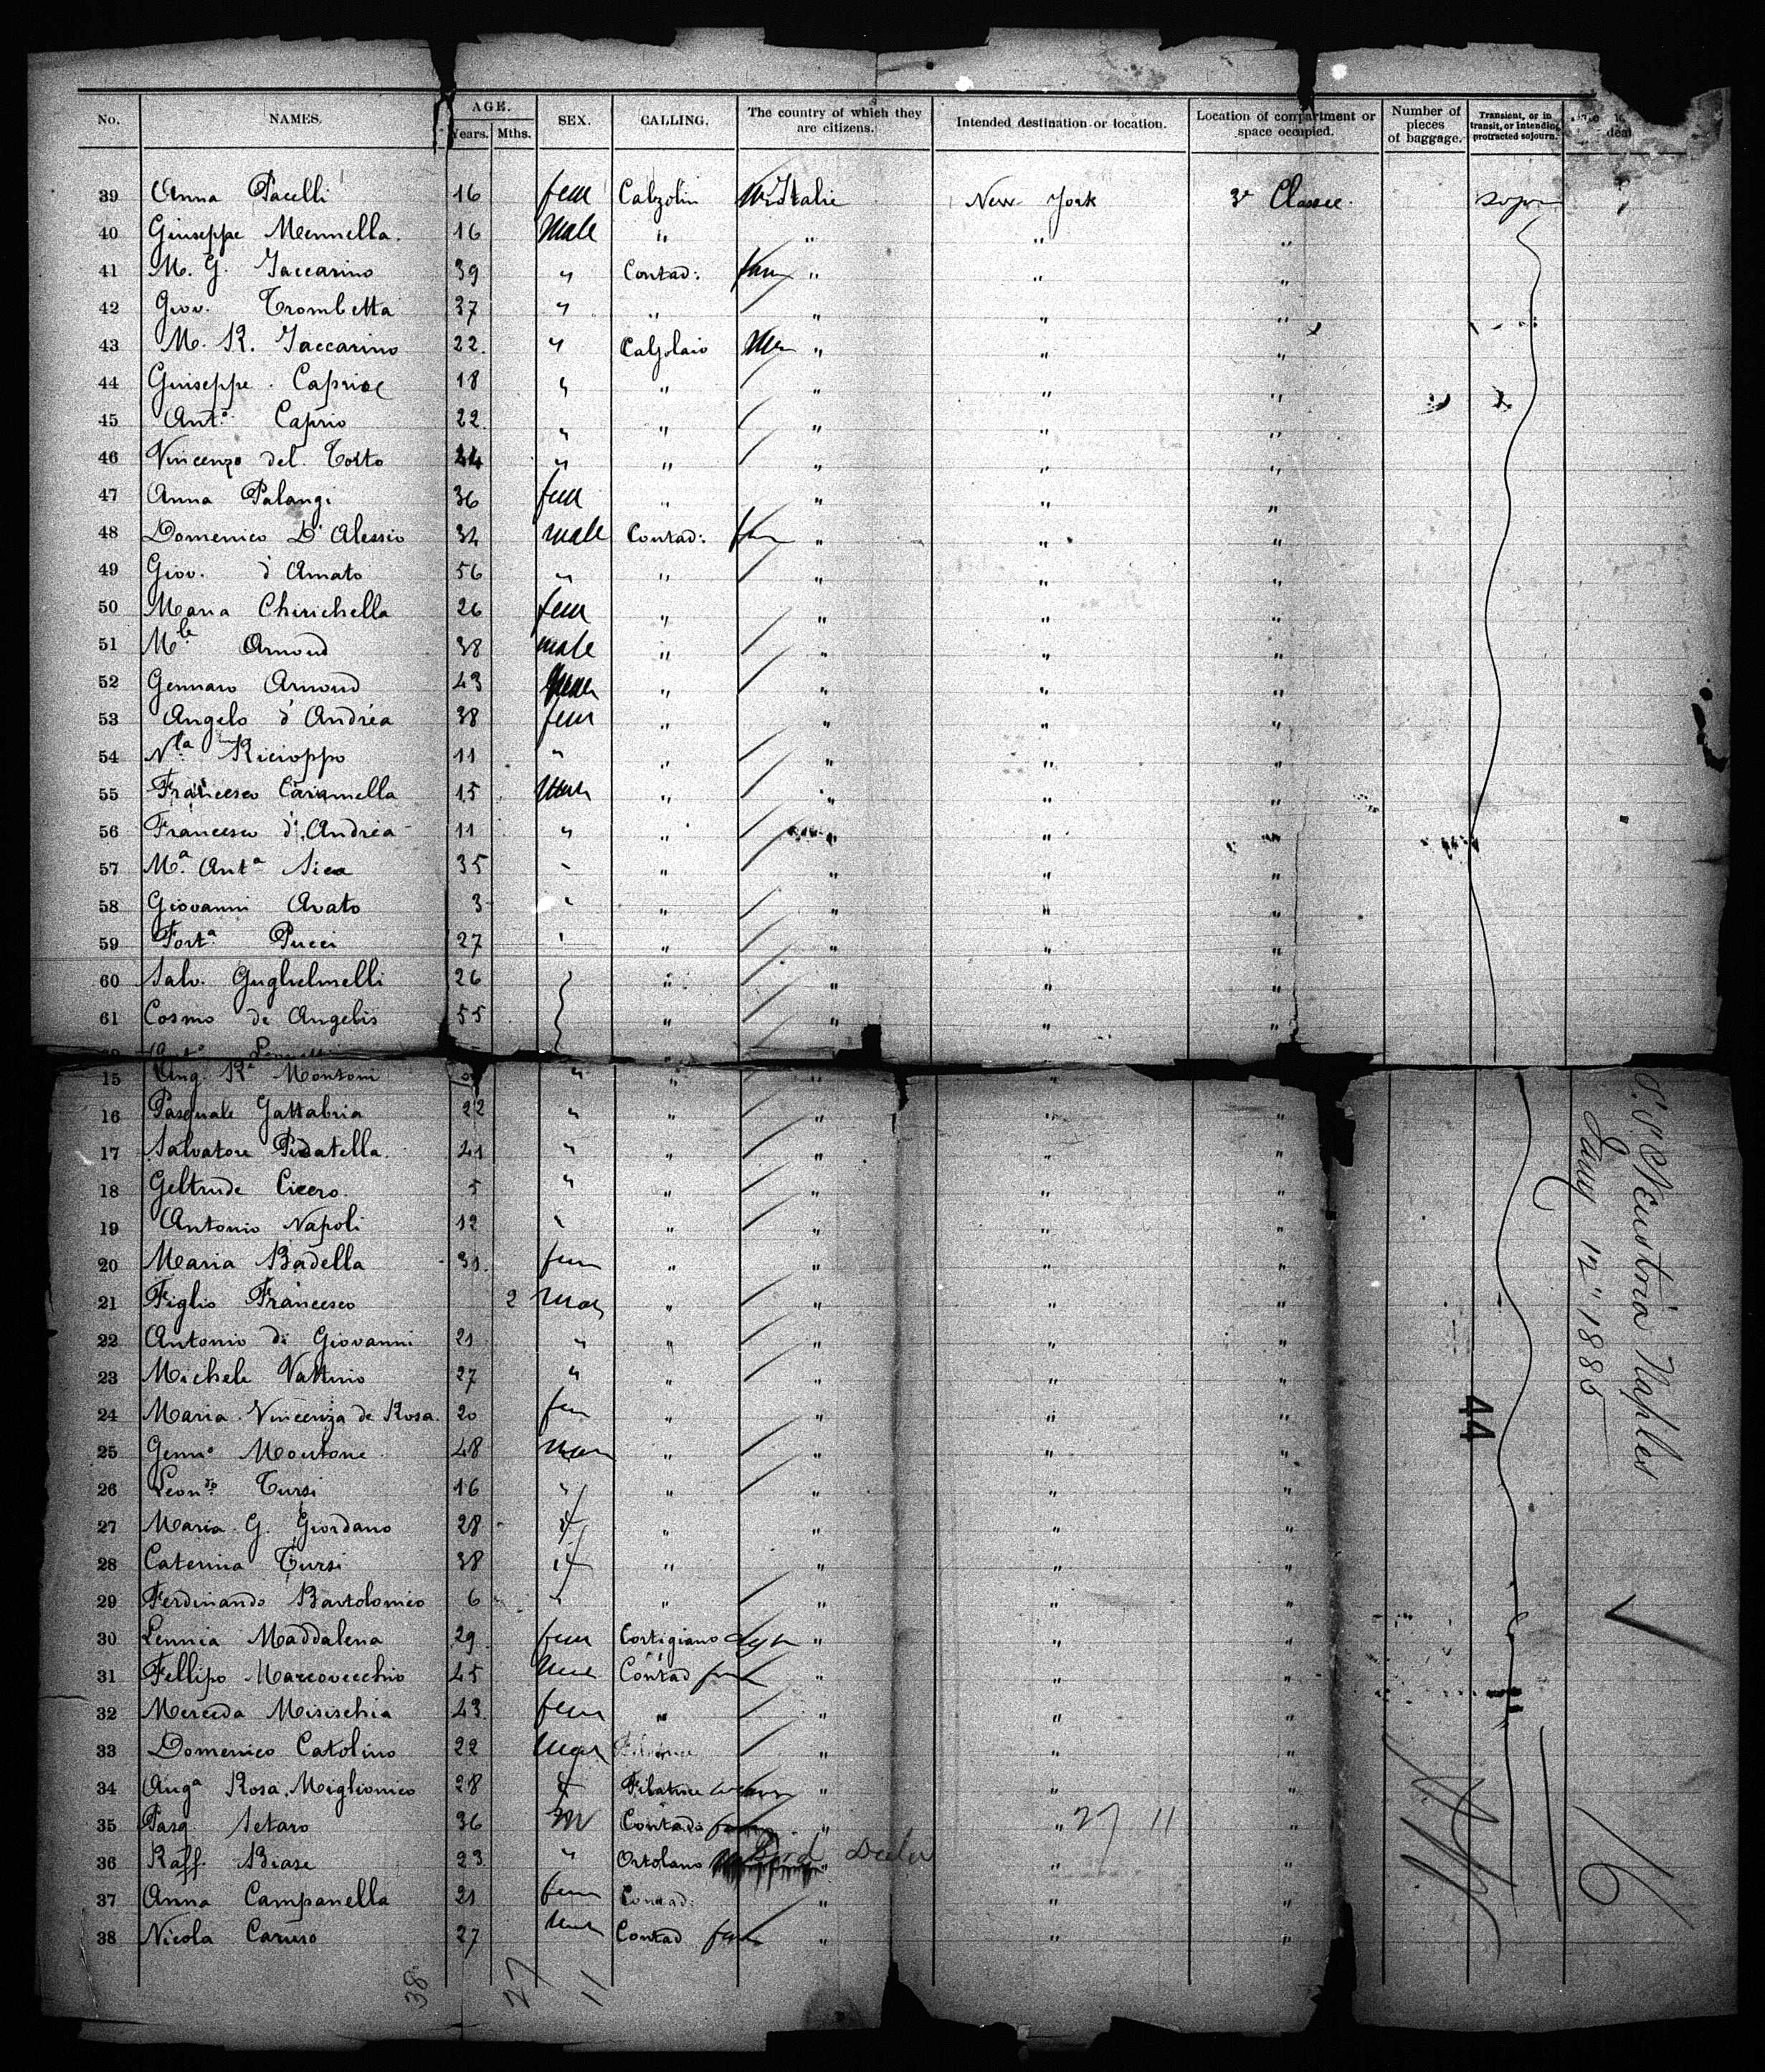 No. NAMES. AGE. Years. Mths. SEX. CALLING. The country of which they are citizens. Intended destination or location. Location of compartment or space occupied. Number of pieces of baggage. Transient, or in transit, or intending protracted sojourn.
39 Anna Pacelli 16 fem Calzolin Italie New York 3e Classe
40 Giuseppe Mennella. 16 Male " " " "
41 M. G. Jaccarino 39 " Contad: " " "
42 Giov. Trombetta 37 " " " " "
43 M. R. Jaccarino 22. " Calzolaio " " "
44 Giuseppe Caprio 18 " " " " "
45 Ant.o Caprio 22. " " " " "
46 Vincenzo del Totto 24 " " " " "
47 Anna Palangi 36 fem " " " "
48 Domenico D'Alessio 32 male Contad: " " "
49 Giov. d'Amato 56 " " " " "
50 Maria Chirichella 26 fem " " " "
51 M.le Amond 38 male " " " "
52 Gennaro Amond 43 " " " "
53 Angelo d'Andrea 38 fem " " " "
54 N.la Ricioppo 11 " " " " "
55 Francesco Caramella 15 " " " "
56 Francesco d'Andrea 11 " " " " "
57 M.a Ant.a Sica 35 " " " " "
58 Giovanni Avato 3 " " " " "
59 Fort.a Pucci 27 " " " " "
60 Salv. Guglielmelli 26 " " " "
61 Cosmo de Angelis 55 " " " "
15 Ang. R.a Montoni " " " " "
16 Pasquale Gattabria 22 " " " " "
17 Salvatore Pidatella. 21 " " " " "
18 Geltrude Cicero. 5 " " " " "
19 Antonio Napoli 12 " " " " "
20 Maria Badella 31. fem " " " "
21 Figlio Francesco 2 " " " "
22 Antonio di Giovanni 21 " " " " "
23 Michele Vattino 27 " " " " "
24 Maria Vincenza de Rosa. 20 fem " " " "
25 Genn.o Montone 48 " " " "
26 Leon.do Tursi 16 " " " " "
27 Maria G. Giordano 28 " " " "
28 Caterina Tursi 38 " " " "
29 Ferdinando Bartolomeo 6 " " " " "
30 Lennia Maddalena 29 fem Cortigiano " " "
31 Fellipo Marcovecchio 45 Contad " " "
32 Merceda Misischia 43. fem " " " "
33 Domenico Catolino 22 " " "
34 Ang.a Rosa Miglionico 28 f Filatrice " " "
35 Pasq. Setaro 36 m Contad: " " 27 11 "
36 Raff. Biase 23 " Ortolano Bird Dealer " " "
37 Anna Campanella 21 fem Contad: " " "
38 Nicola Caruso 27 Contad " " "
38 27 11
S.S. Neustria Naples
Jany 12" 1885
44
16